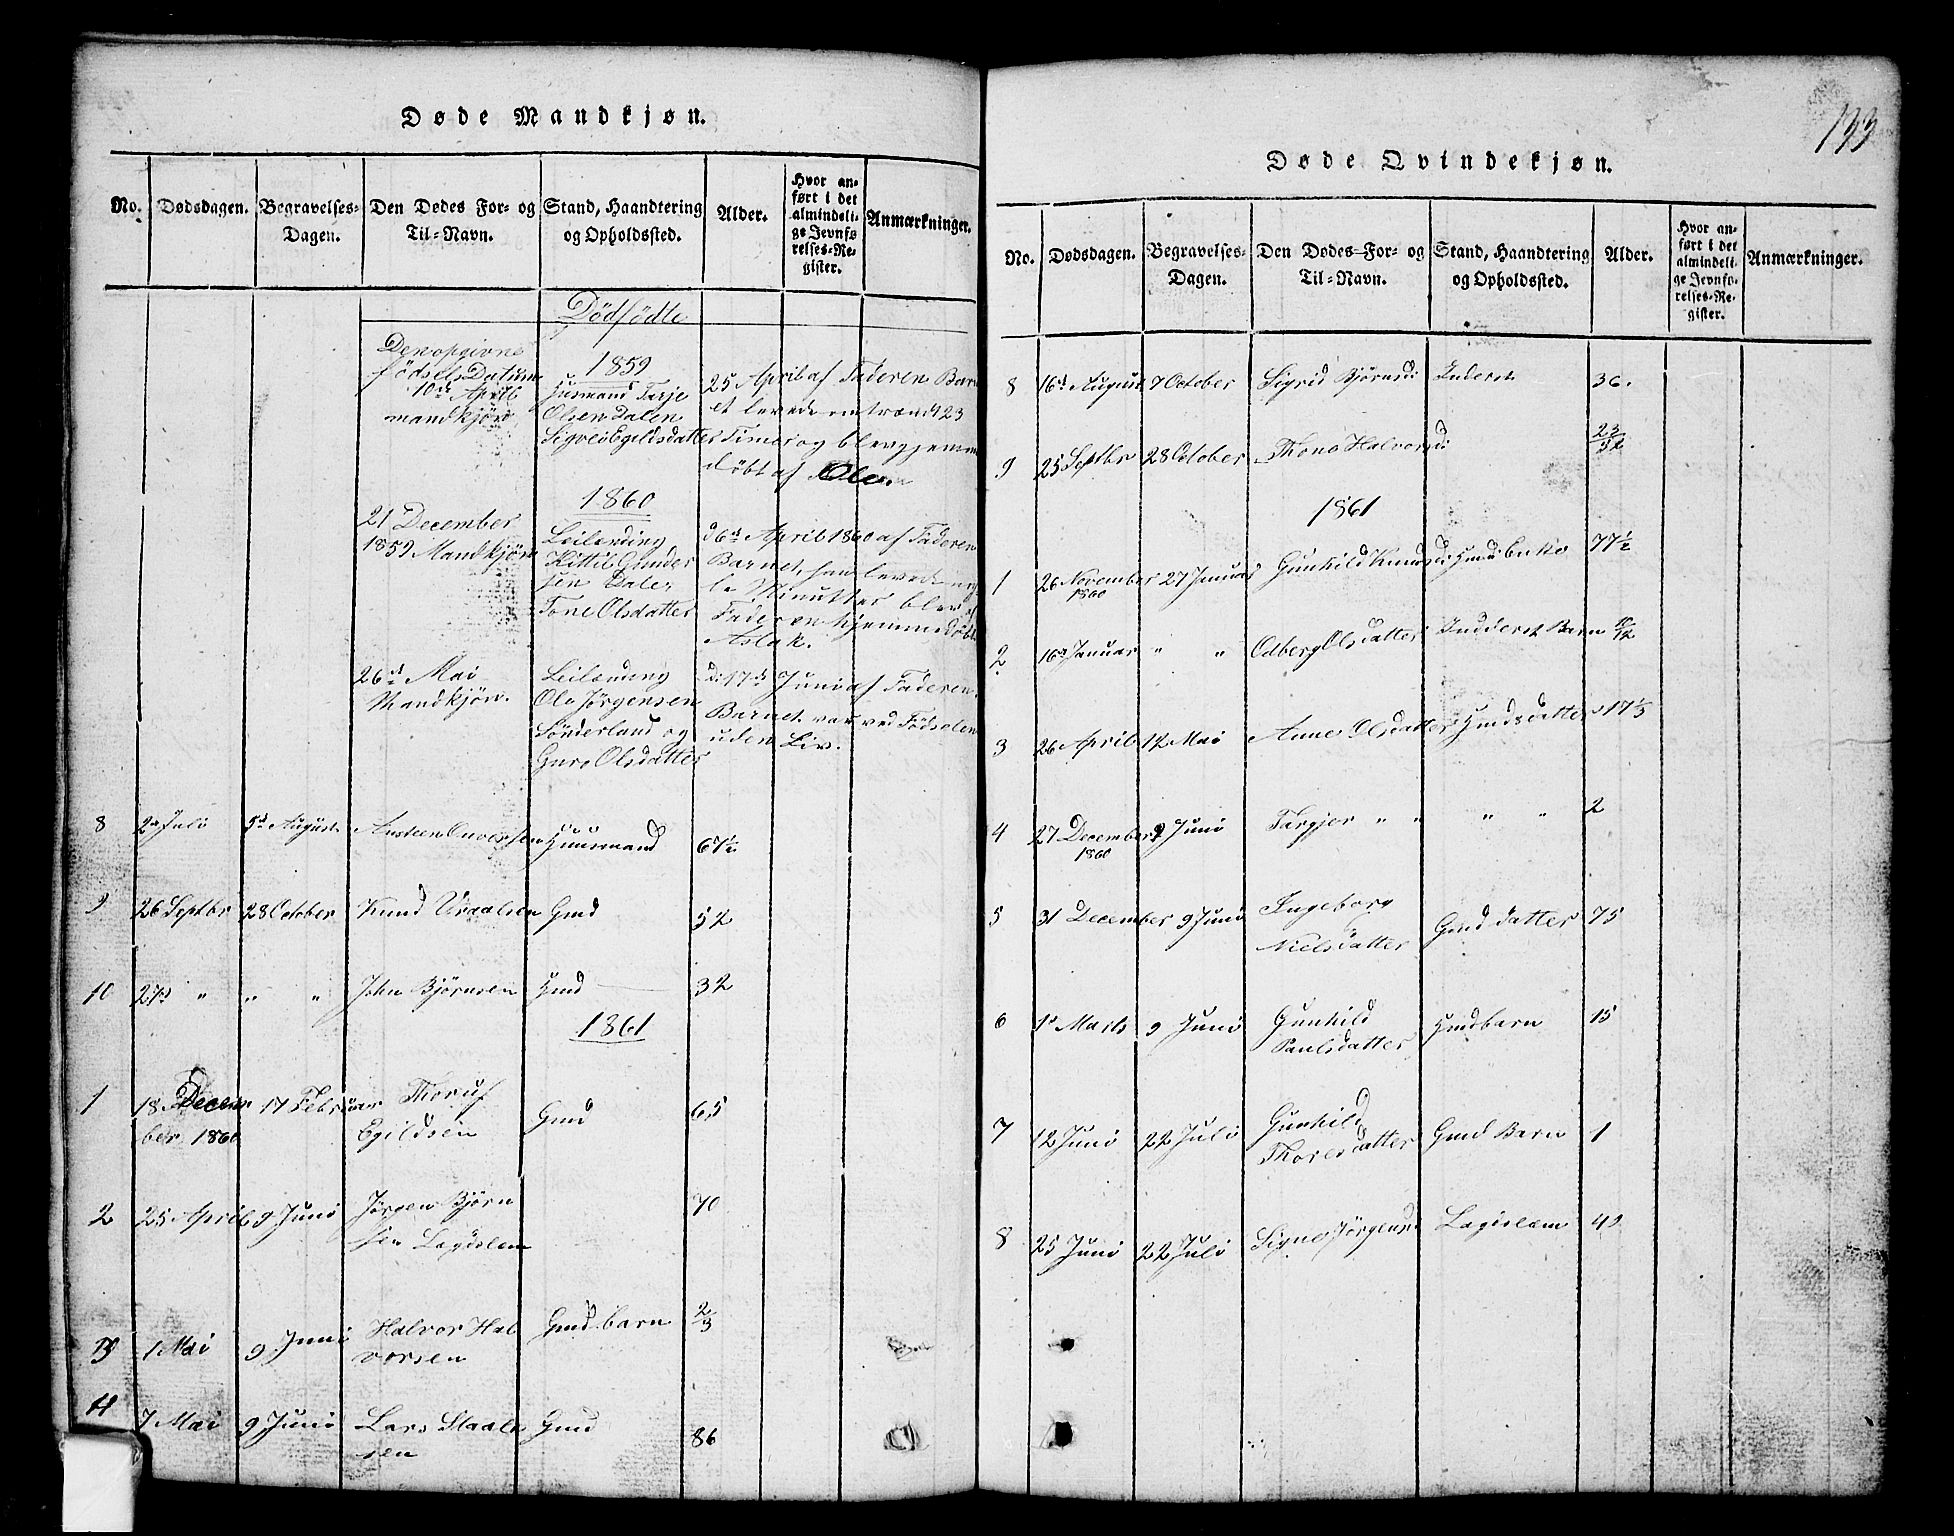 Døde Mandkjøn.
No. Dødsdagen. Begravelses-Dagen. Den Dødes For- og Til-Navn. Stand, Haandtering og Opholdssted. Alder. Hvor anført i det almindelige Jevnførelses-Register. Anmærkninger.
Dödfödte
1859
Den opgivne
födsels Datum
10de April
mandkjön
Huusmand Tarje
Olsen Dalen
Sigve Egildsdatter
25 April af Faderen Barn
et levede omtrendt 23
Timer og blev hjemme
döbt af Ole.
1860
21 December
1859 Mandkjön
Leilænding
Kittil Gunder
sen Dalen
Tone Olsdatter
d 6te April 1860 af Faderen
Barnet, han levede
Minutter blev af
Faderen hjemmedöbt
Aslak.
26de Mai
Mandkjön.
Leilænding
Ole Jørgensen
Sönderland og
Guro Olsdatter
d: 17de Juni af Faderen.
Barnet var ved Födselen
uden Liv.
8 2de Juli 5te August Austeen Huusmand 67½
9 26 Septbr 28 October Knud Uraalsen Gmd 52
10 27de " " " John Bjørnsen Hmd 32
1861
1 18 Decem 17 Februar Thoruf Gmd 65
ber 1860 Egildsen
2 25 April 9 Juni Jørgen Bjørn 70
sen Lægdslem
3 1 Mai 9 Juni Halvor Hal Gmd barn 2/3
vorsen
4 7 Mai 9 Juni Lars Staale Gmd 86
sen
133
Døde Qvindekjøn.
No. Dødsdagen. Begravelses-Dagen. Den Dødes For- og Til-Navn. Stand, Haandtering og Opholdssted. Alder. Hvor anført i det almindelige Jevnførelses-Register. Anmærkninger.
8 16de August 7 October Sigrid Bjørnsd: Inderst 36.
9 25 Septbr 28 October Thone Halvorsd:
1861
1 26 November 27 Januar Gunhild Knudsd: Hmd Enke 77½
1860
2 16de Januar " " Odberg Olsdatter Inderst Barn
3 26 April 12 Mai Anne Olsdatter Hmdsdatter 17
4 27 December 9 Juni Targjer " " " " 2
1860
5 31 December 9 Juni Ingeborg Gmd datter 75
Nielsdatter
6 1de Marts 9 Juni Gunhild Hmdbarn 15
Paulsdatter
7 12 Juni 22 Juli Gunhild Gmd Barn 1
Thoresdatter
8 25 Juni 22 Juli Signe Jörgensd: Lægdslem